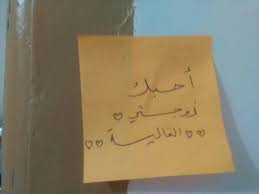 أحبك
زوجتي ♡
♡♡ الغالية ♡♡